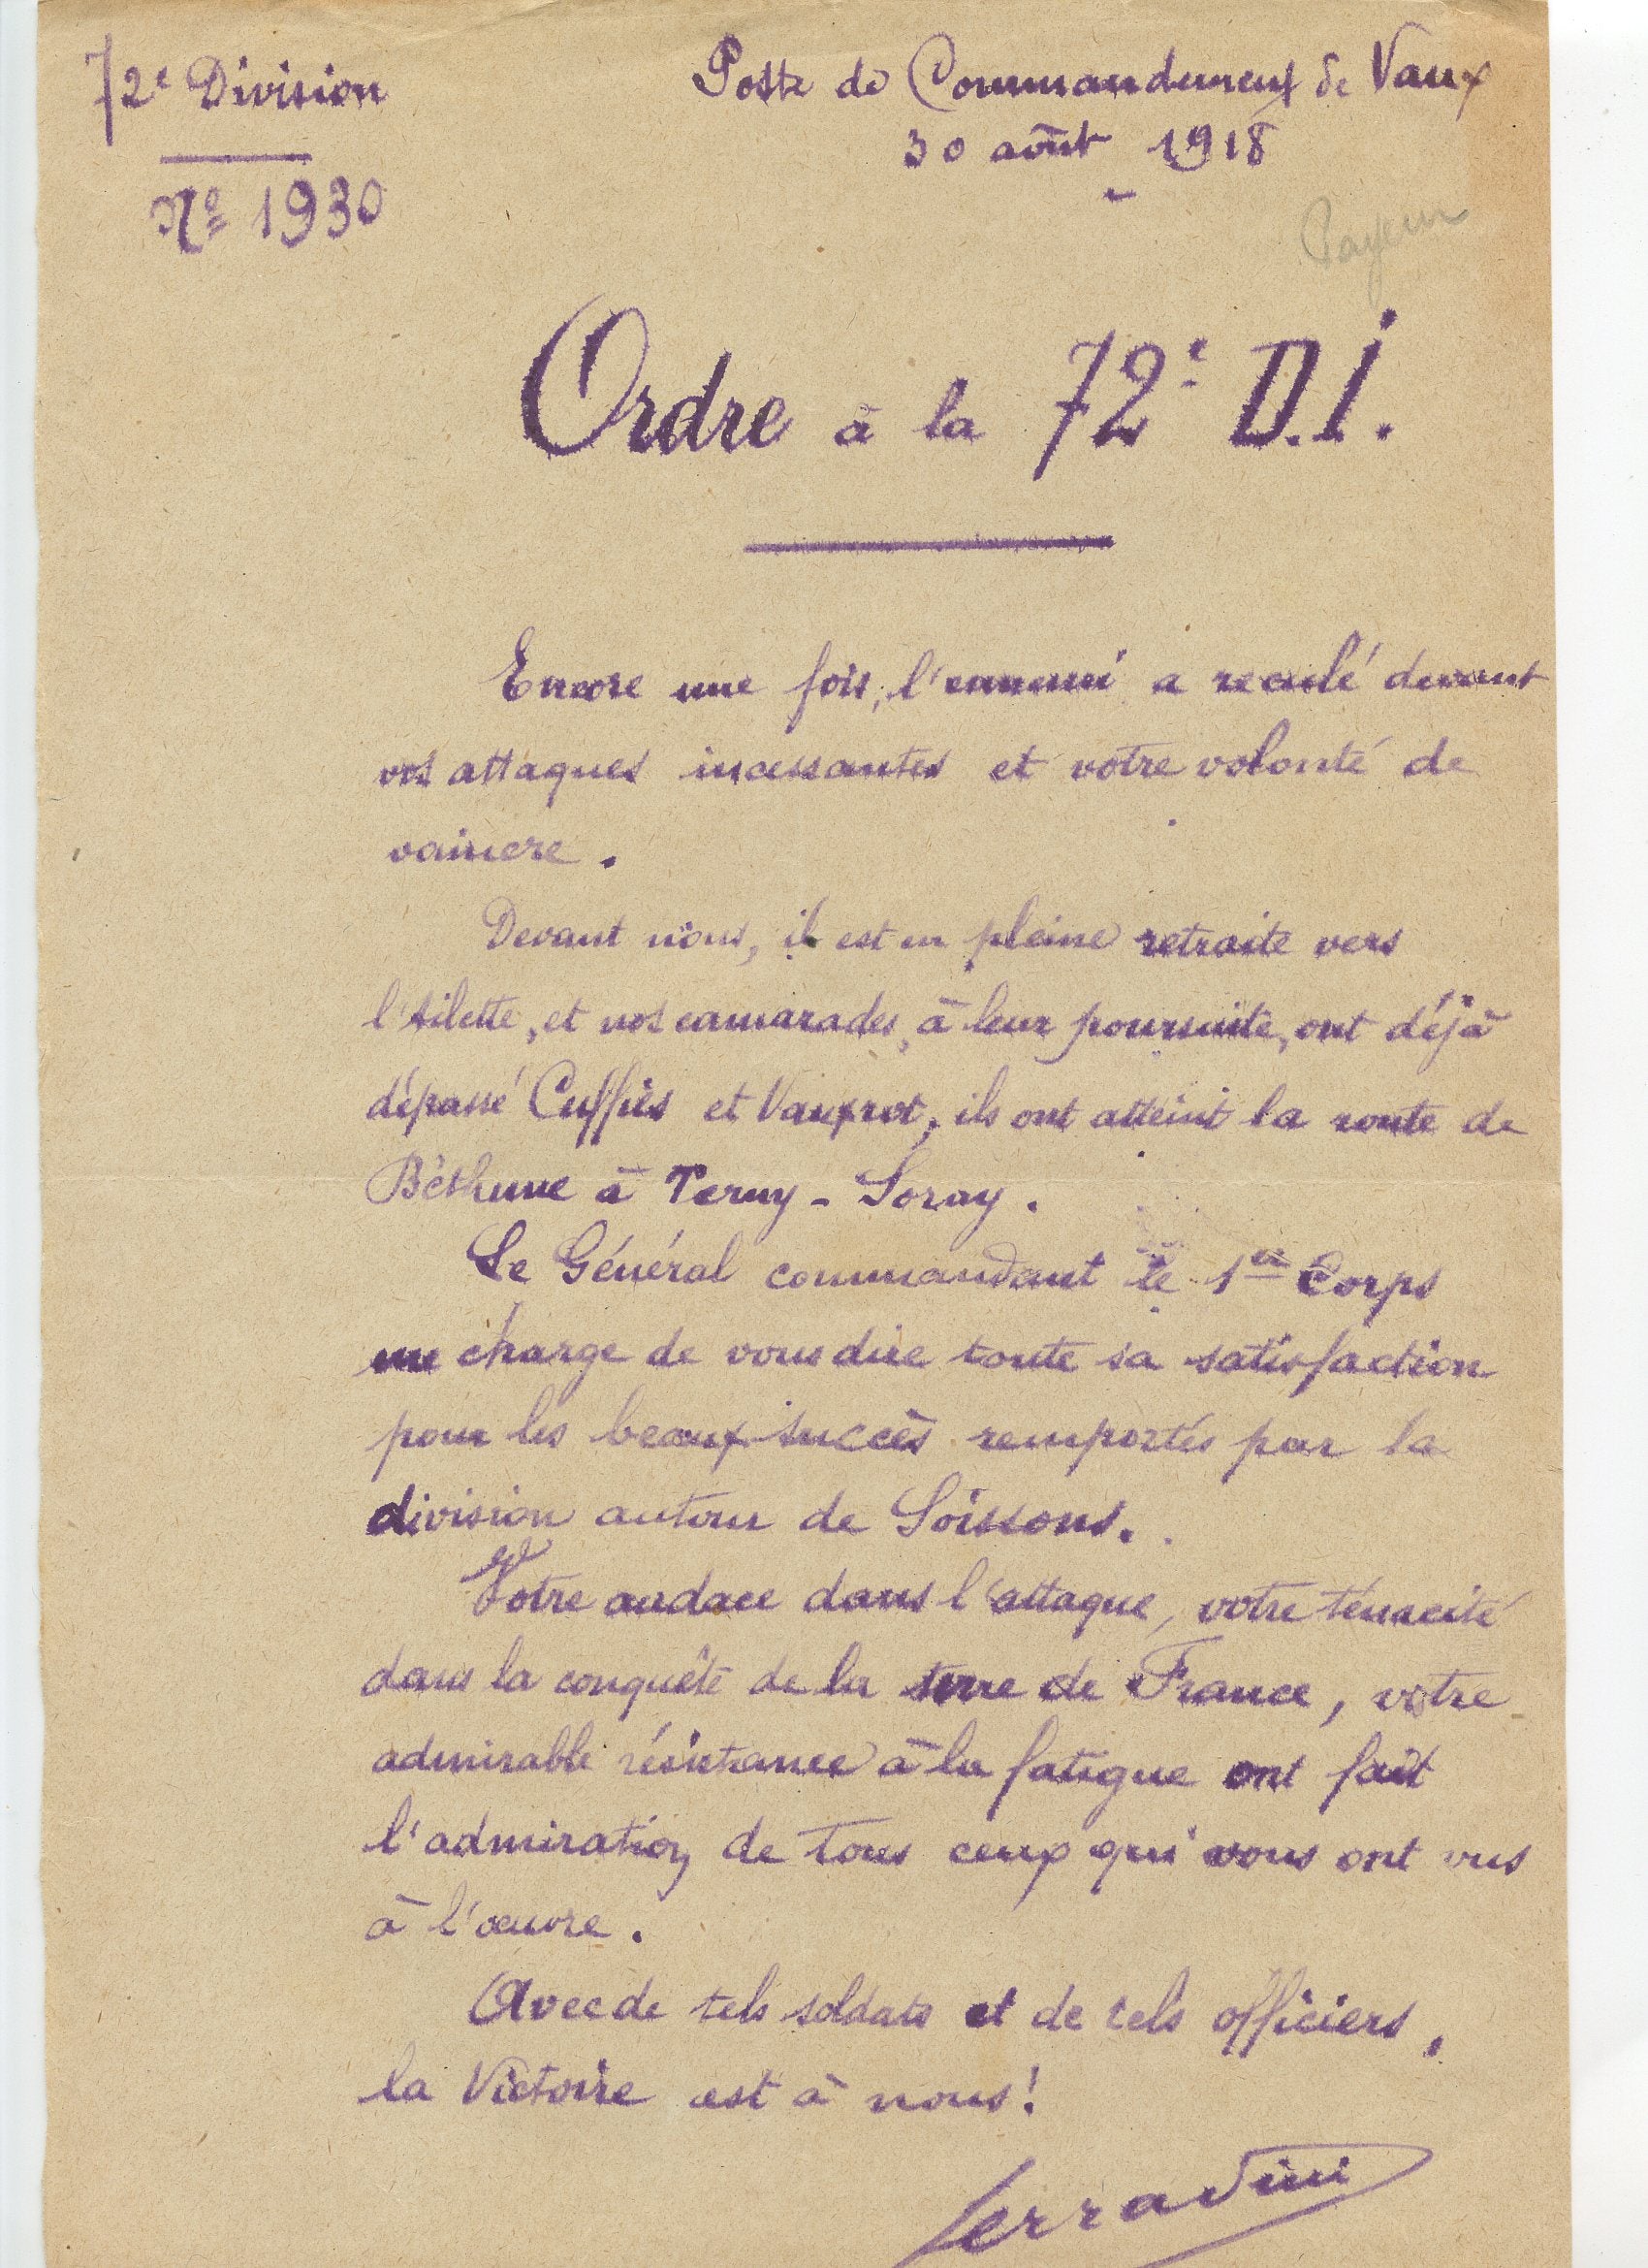 72e Division
Poste de Commandement de Vaux
30 août 1918
No 1930
Payeur
Ordre à la 72e D.I.
Encore une fois, l'ennemi a reculé devant
vos attaques incessantes et votre volonté de
vaincre.
Devant nous, il est en pleine retraite vers
l'Ailette, et nos camarades, à leur poursuite, ont déjà
dépassé Cuffies et Vauxrot, ils ont atteint la route de
Béthune à Terny-Soray.
Le Général commandant le 1er Corps
me charge de vous dire toute sa satisfaction
pour les beaux succès remportés par la
division autour de Soissons.
Votre audace dans l'attaque, votre ténacité
dans la conquête de la terre de France, votre
admirable résistance à la fatigue ont fait
l'admiration de tous ceux qui vous ont vus
à l'œuvre.
Avec de tels soldats et de tels officiers,
la Victoire est à nous!